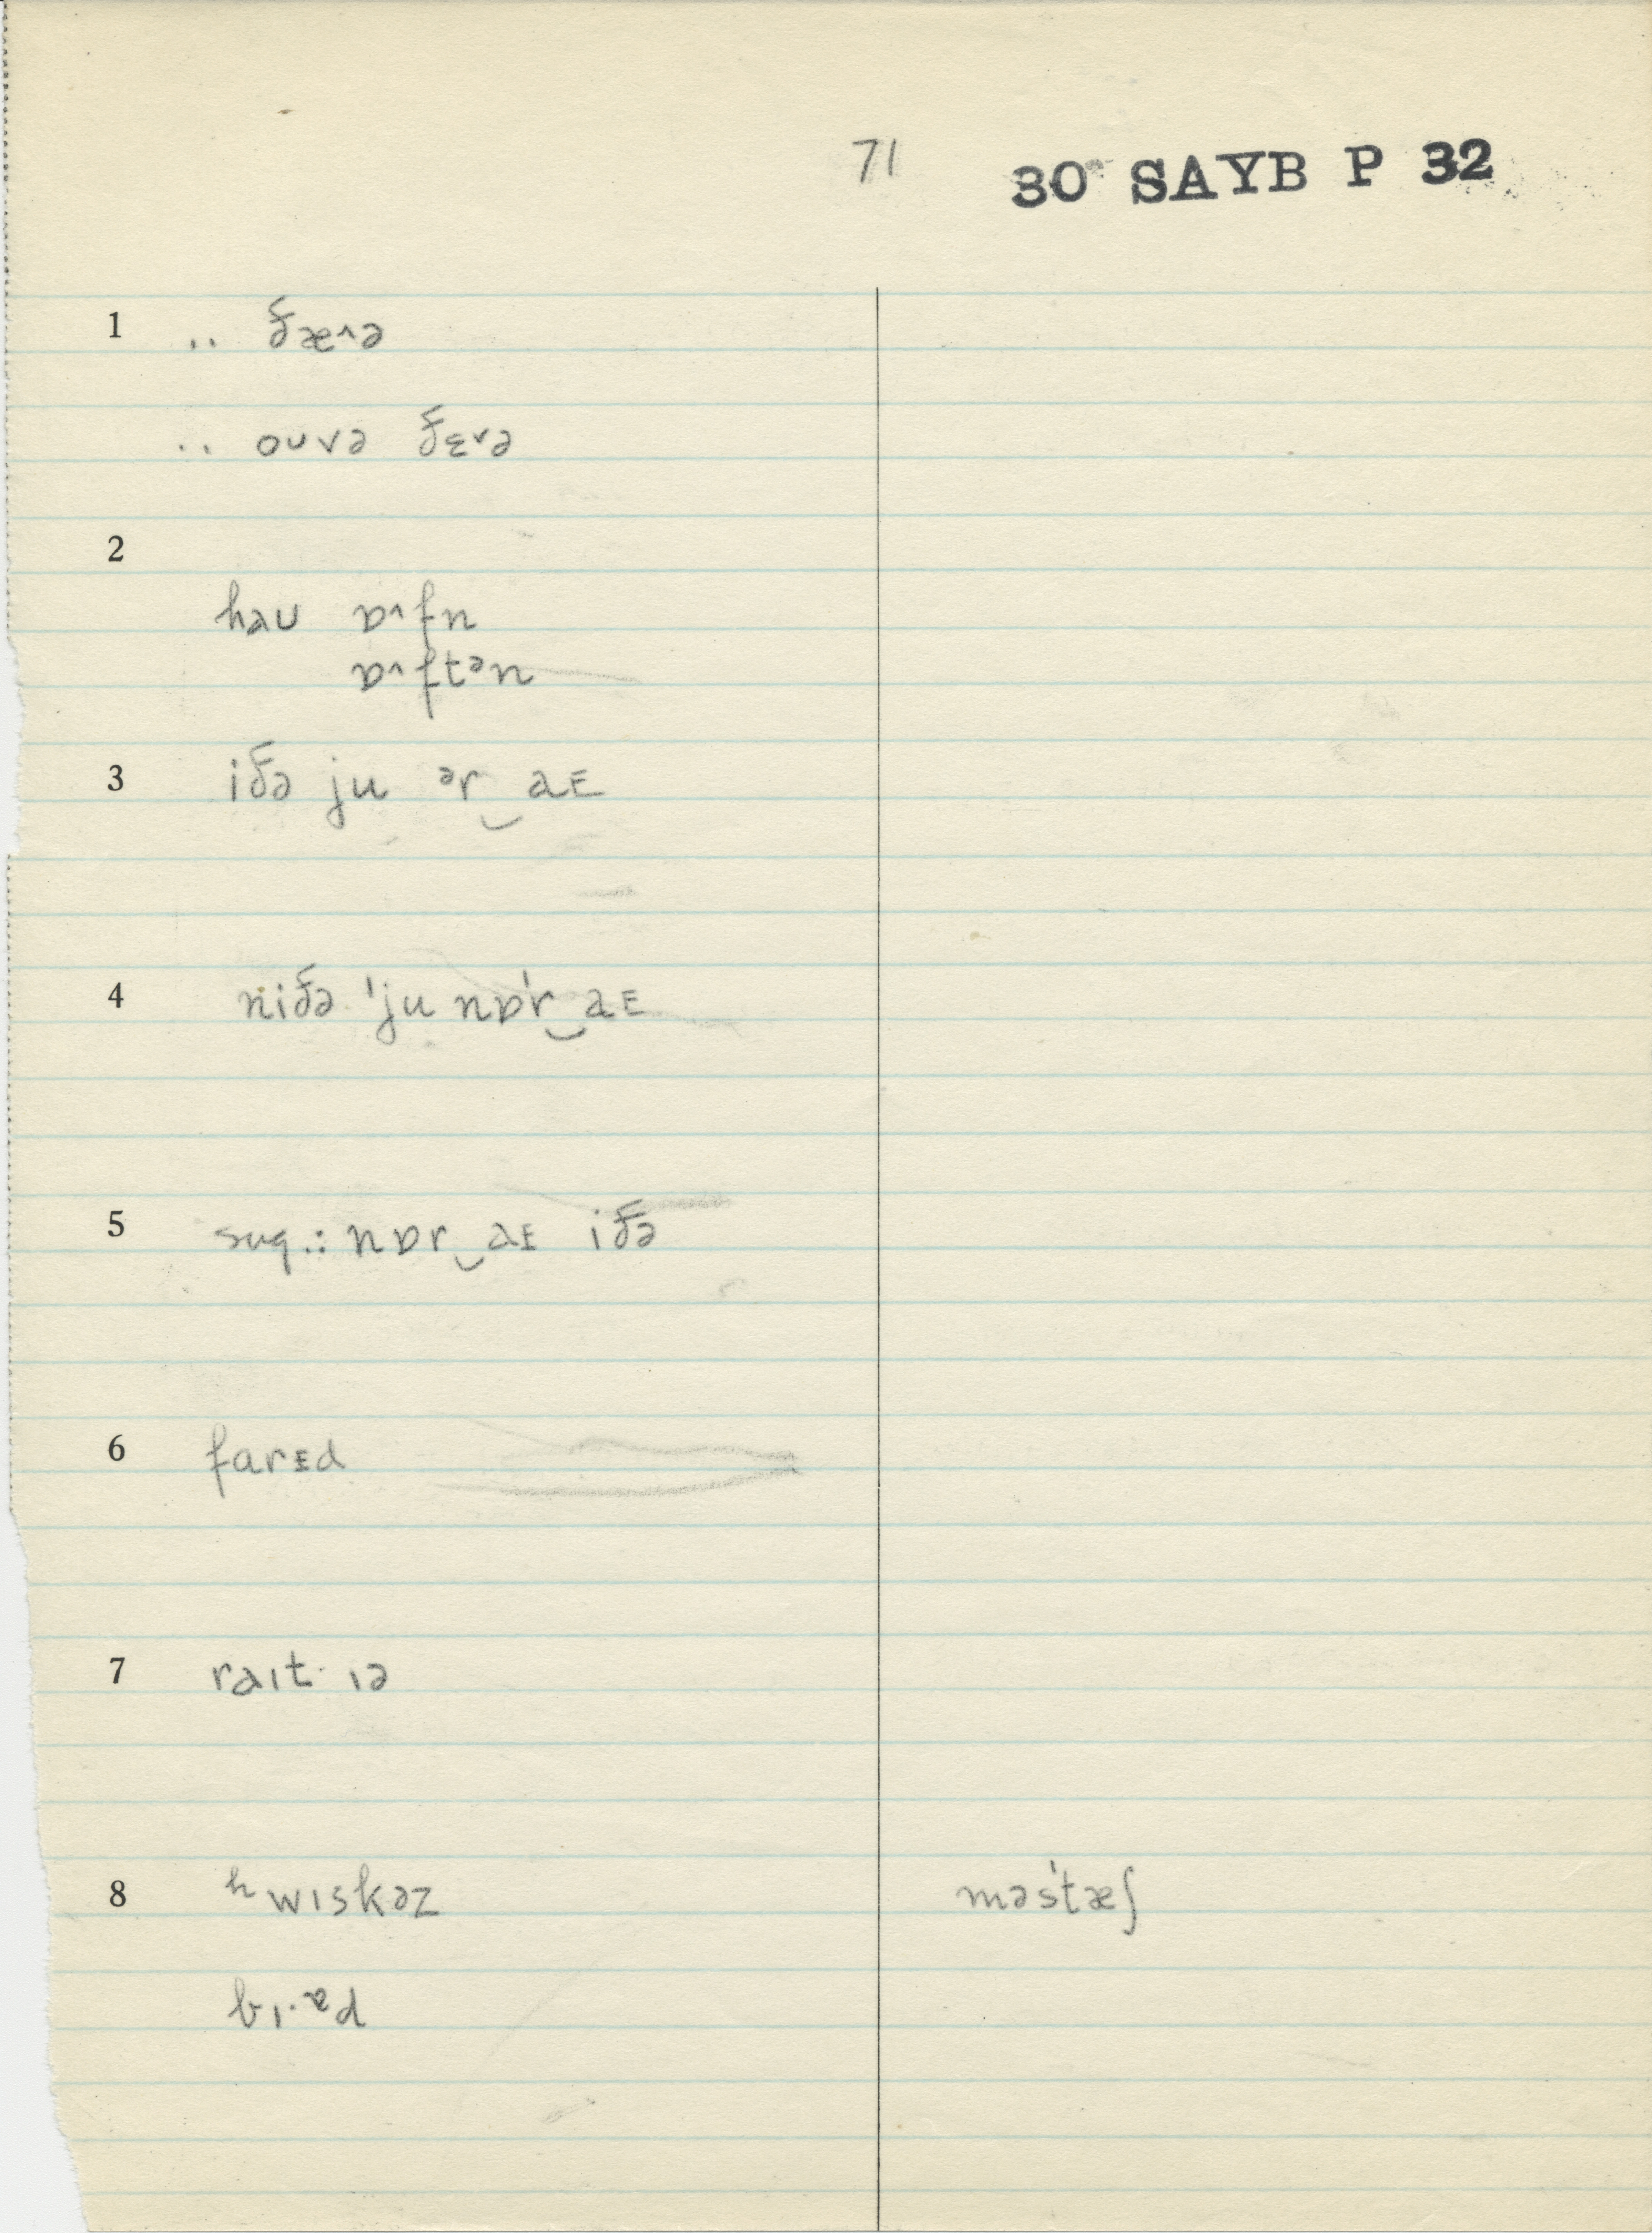 71 30 SAYB P 32
1 .. ðæ˄ə
.. oʊvə ðɛ˅ə
2
haʊ ɒ˄fn
ɒ˄ftᵊn
3 iðə ju ᵊr‿aᴇ
4 niðə 'ju nɒ'r‿aᴇ
5 sug.: nɒr‿aᴇ iðə
6 farᴇd
7 raɪt· ɪə
8 ʰwɪskəz mə'stæʃ
bɪ·ᵊd